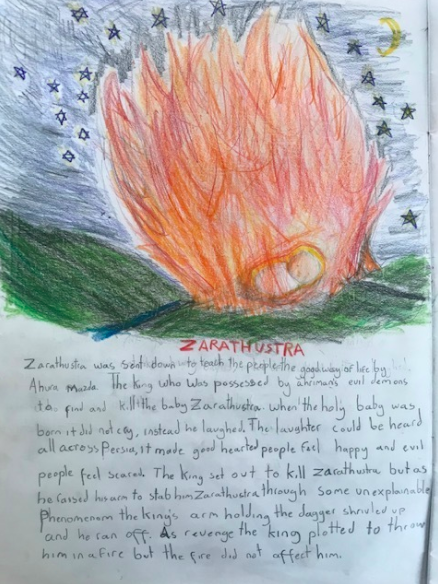 ZARATHUSTRA
Zarathustra was sent down to teach the people the good way of life by
Ahura Mazda. The King who was possessed by ahriman's evil demons
to find and kill the baby Zarathustra. when the holy baby was
born it did not cry, instead he laughed. The laughter could be heard
all across Persia, it made good hearted people feel happy and evil
people feel scared. The King set out to kill Zarathustra but as
he raised his arm to stab him Zarathustra through some unexplainable
Phenomenom the King's arm holding the dagger shrivled up
and he ran off. As revenge the king plotted to throw
him in a fire but the fire did not affect him.